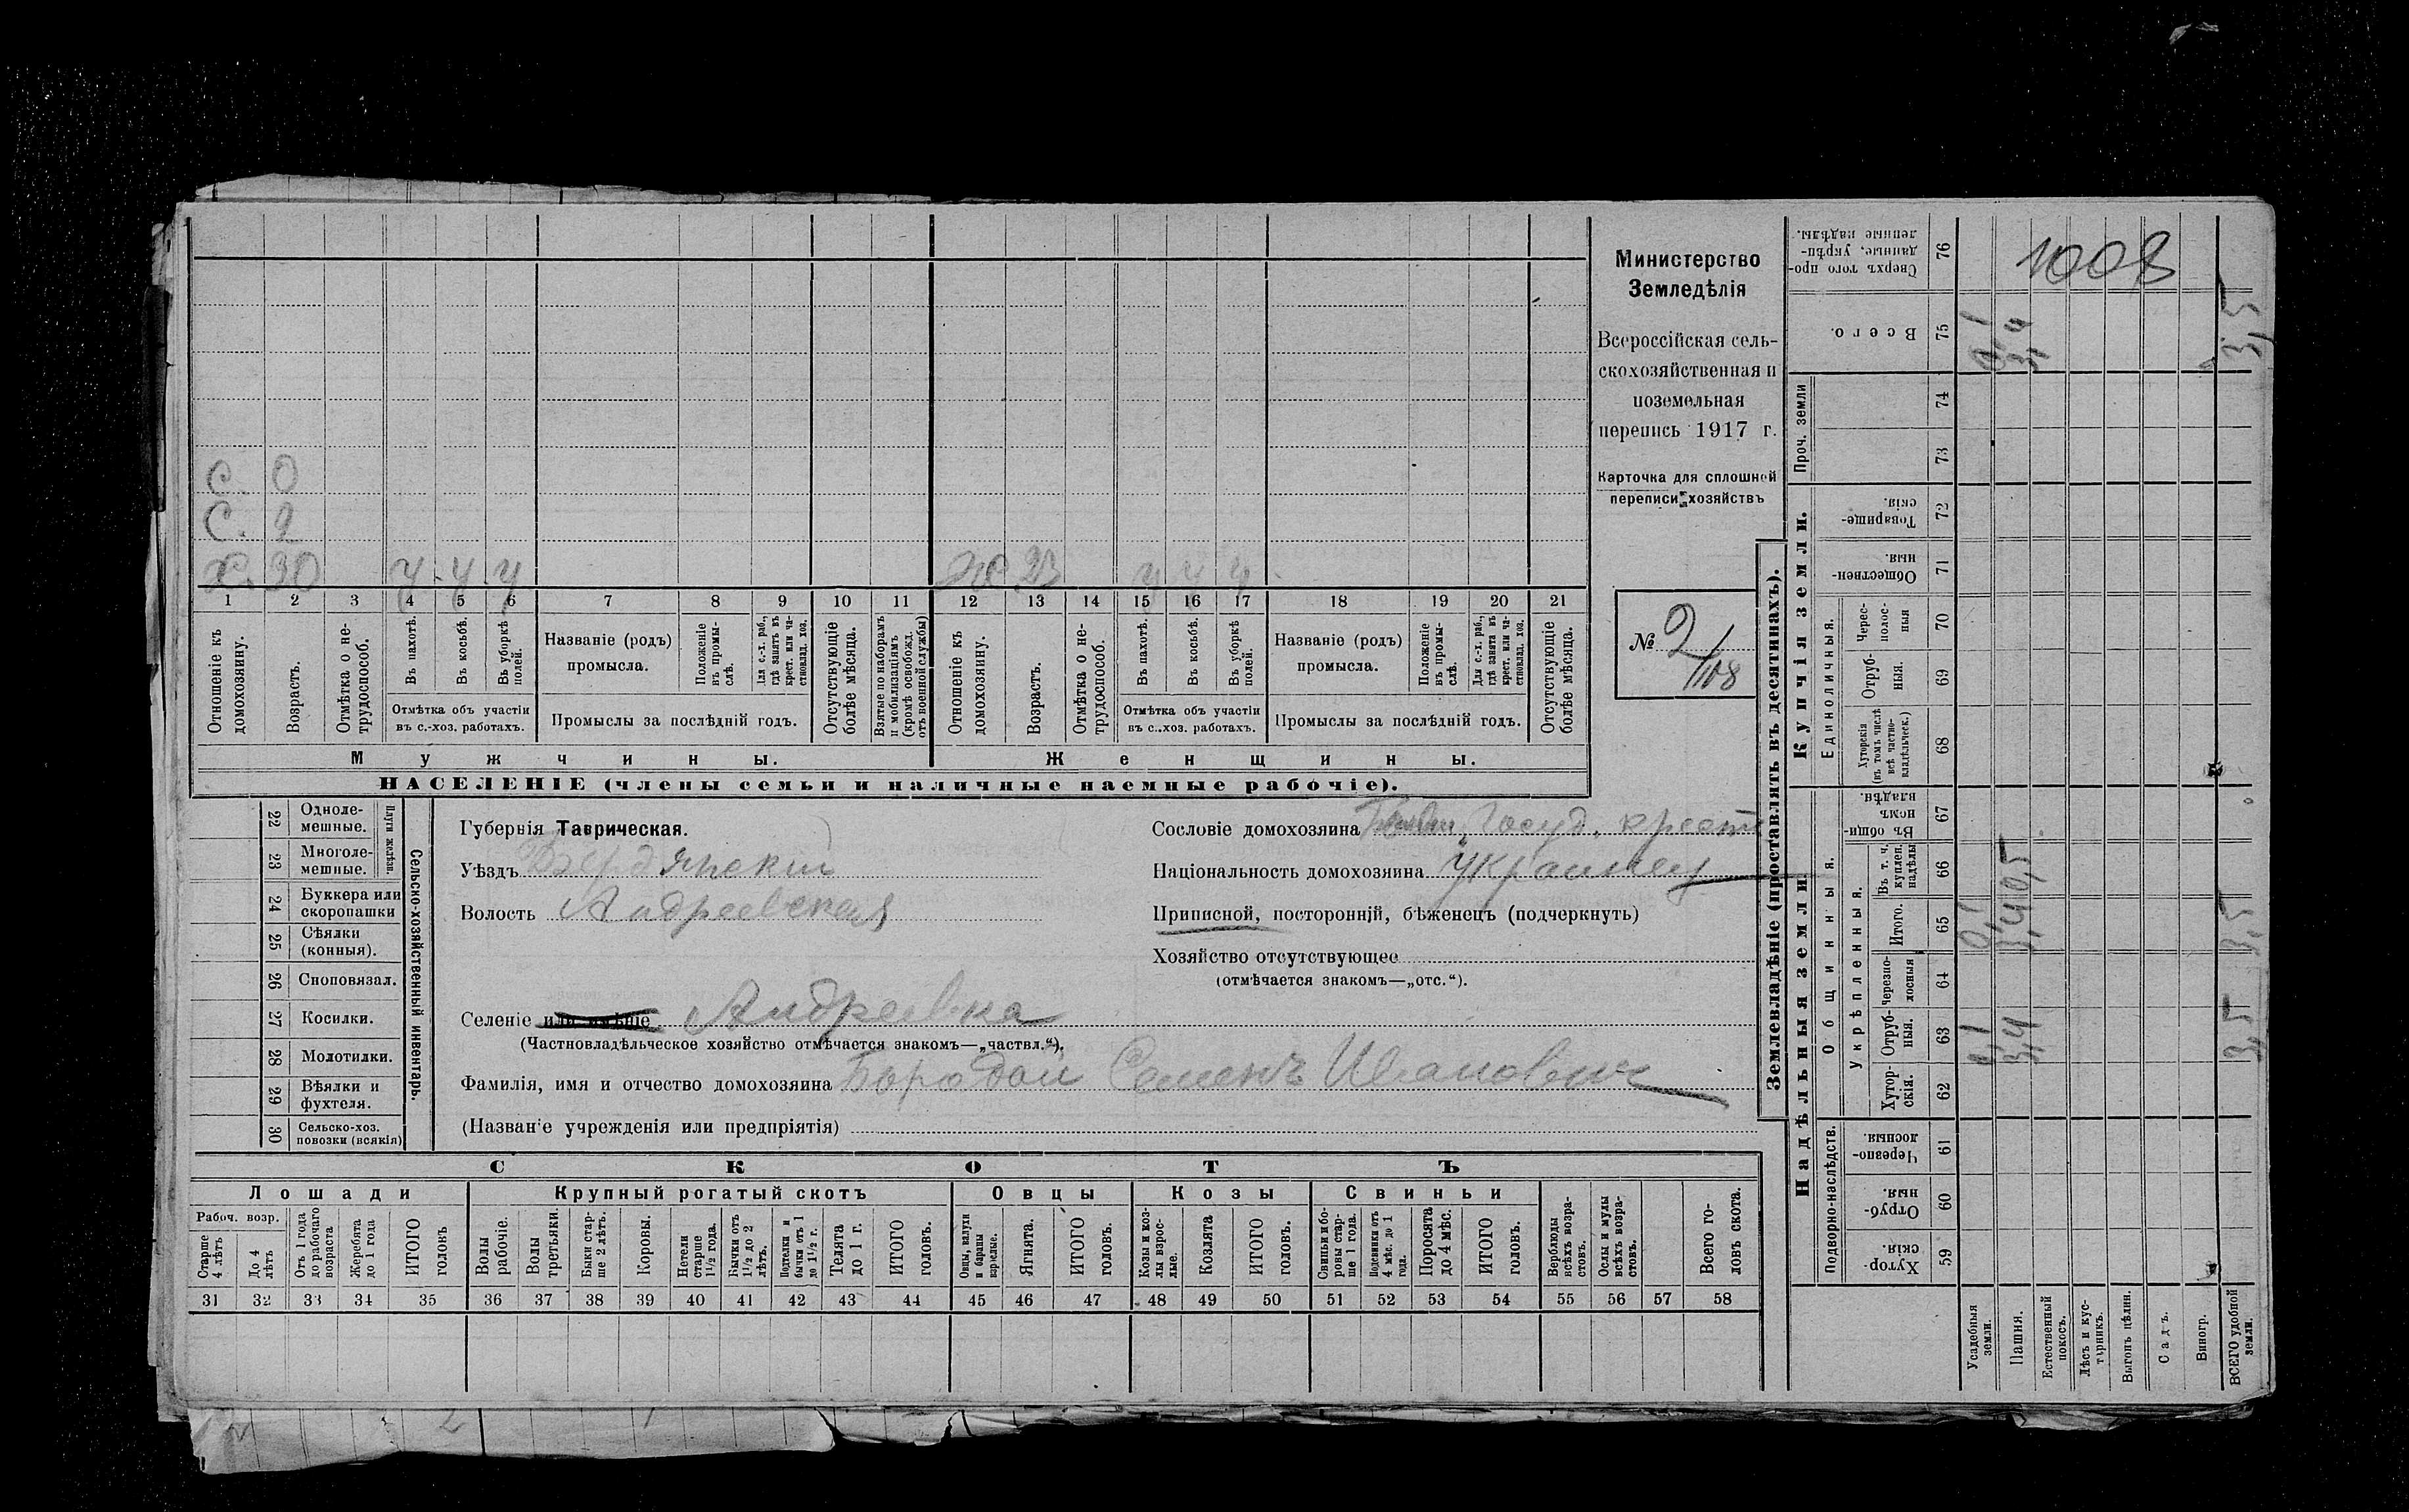 С. 0
С. 2
Х. 30 у. у. у Ж. 23 у у у.
1 2 3 4 5 6 7 8 9 10 11 12 13 14 15 16 17 18 19 20 21
Отношеніе къ домохозяину.
Возрастъ.
Отмѣтка о не-
трудоспособ.
Въ пахотѣ.
Въ косьбѣ.
Въ уборкѣ
полей.
Отмѣтка объ участіи
въ с.-хоз. работахъ.
Названіе (родъ)
промысла.
Положеніе
въ промы-
слѣ.
Для с.-х. раб.,
гдѣ занятъ въ
крест. или ча-
стновлад. хоз.
Промыслы за послѣдній годъ.
Отсутствующіе
болѣе мѣсяца.
Взятые по наборамъ
и мобилизаціямъ
(кромѣ освобожд.
отъ военной службы)
Отношеніе къ
домохозяину.
Возрастъ.
Отмѣтка о не-
трудоспособ.
Въ пахотѣ.
Въ косьбѣ.
Въ уборкѣ
полей.
Отмѣтка объ участіи
въ с.-хоз. работахъ.
Названіе (родъ)
промысла.
Положеніе
въ промы-
слѣ.
Для с.-х. раб.,
гдѣ занята въ
крест. или ча-
стновлад. хоз.
Промыслы за послѣдній годъ.
Отсутствующіе
болѣе мѣсяца.
Мужчины. Женщины.
НАСЕЛЕНІЕ (члены семьи и наличные наемные рабочіе).
Министерство
Земледѣлія
Всероссійская сель-
скохозяйственная и
поземельная
перепись 1917 г.
Карточка для сплошной
переписи хозяйствъ
№ 2/108
22 Одноле-
мешные.
23 Многоле-
мешные.
Плуги желѣзн.
24 Буккера или
скоропашки
25 Сѣялки
(конныя).
26 Сноповязал.
27 Косилки.
28 Молотилки.
29 Вѣялки и
фухтеля.
30 Сельско-хоз.
повозки (всякія)
Сельско-хозяйственный инвентарь.
Губернія Таврическая.
Уѣздъ Бердянскій
Волость Андреевская
Селеніе или имѣніе Андреевка
(Частновладѣльческое хозяйство отмѣчается знакомъ—„частвл.“).
Фамилія, имя и отчество домохозяина Бородай Семенъ Иванович
(Названіе учрежденія или предпріятія)
Сословіе домохозяина Госуд. крест
Національность домохозяина украинец
Приписной, посторонній, бѣженецъ (подчеркнуть)
Хозяйство отсутствующее
(отмѣчается знакомъ—„отс.“).
СКОТЪ
Лошади Крупный рогатый скотъ Овцы Козы Свиньи
Рабоч. возр.
Старше
4 лѣтъ
До 4
лѣтъ
Отъ 1 года
до рабочаго
возраста
Жеребята
до 1 года
ИТОГО
головъ
Волы
рабочіе.
Волы
третьяки.
Быки стар-
ше 2 лѣтъ.
Коровы.
Нетели
старше
1½ года.
Бычки отъ
1½ до 2
лѣтъ.
Подтелки и
бычки отъ 1
до 1½ г.
Телята
до 1 г.
ИТОГО
головъ.
Овцы, валухи
и бараны
взрослые.
Ягнята.
ИТОГО
головъ.
Козы и коз-
лы взрос-
лые.
Козлята
ИТОГО
головъ.
Свиньи и бо-
ровы стар-
ше 1 года.
Подсвинки отъ
4 мѣс. до 1
года.
Поросята
до 4 мѣс.
ИТОГО
головъ.
Верблюды
всѣхъ возра-
стовъ.
Ослы и мулы
всѣхъ возра-
стовъ.
Всего го-
ловъ скота.
31 32 33 34 35 36 37 38 39 40 41 42 43 44 45 46 47 48 49 50 51 52 53 54 55 56 57 58
Землевладѣніе (проставлять въ десятинахъ).
Надѣльныя земли
Купчія земли.
Проч. земли
Сверхъ того про-
данные, укрѣп-
ленные надѣлы.
76
1008
Всего.
75 0,1 3,4 3,5
74
73
Товарище-
скія.
72
Обществен-
ныя.
71
Единоличныя.
Черес-
полос-
ныя
70
Отруб-
ныя.
69
Хуторскія
(въ томъ числѣ
всѣ частно-
владѣльческ.)
68
Общинныя.
Въ общи-
номъ
владѣн.
67
Укрѣпленныя.
Въ т. ч.
куплен.
надѣлы
66
Итого.
65 0,1 3,4 0,5 3,5
Черезпо-
лосныя
64
Отруб-
ныя.
63 0,1 3,4 3,5
Хутор-
скія.
62
Подворно-наслѣдств.
Черезпо-
лосныя.
61
Отруб-
ныя.
60
Хутор-
скія.
59
Усадебныя
земли.
Пашня.
Естественный
покосъ.
Лѣсъ и кус-
тарникъ.
Выгонъ цѣлин.
Садъ.
Виногр.
ВСЕГО удобной
земли.